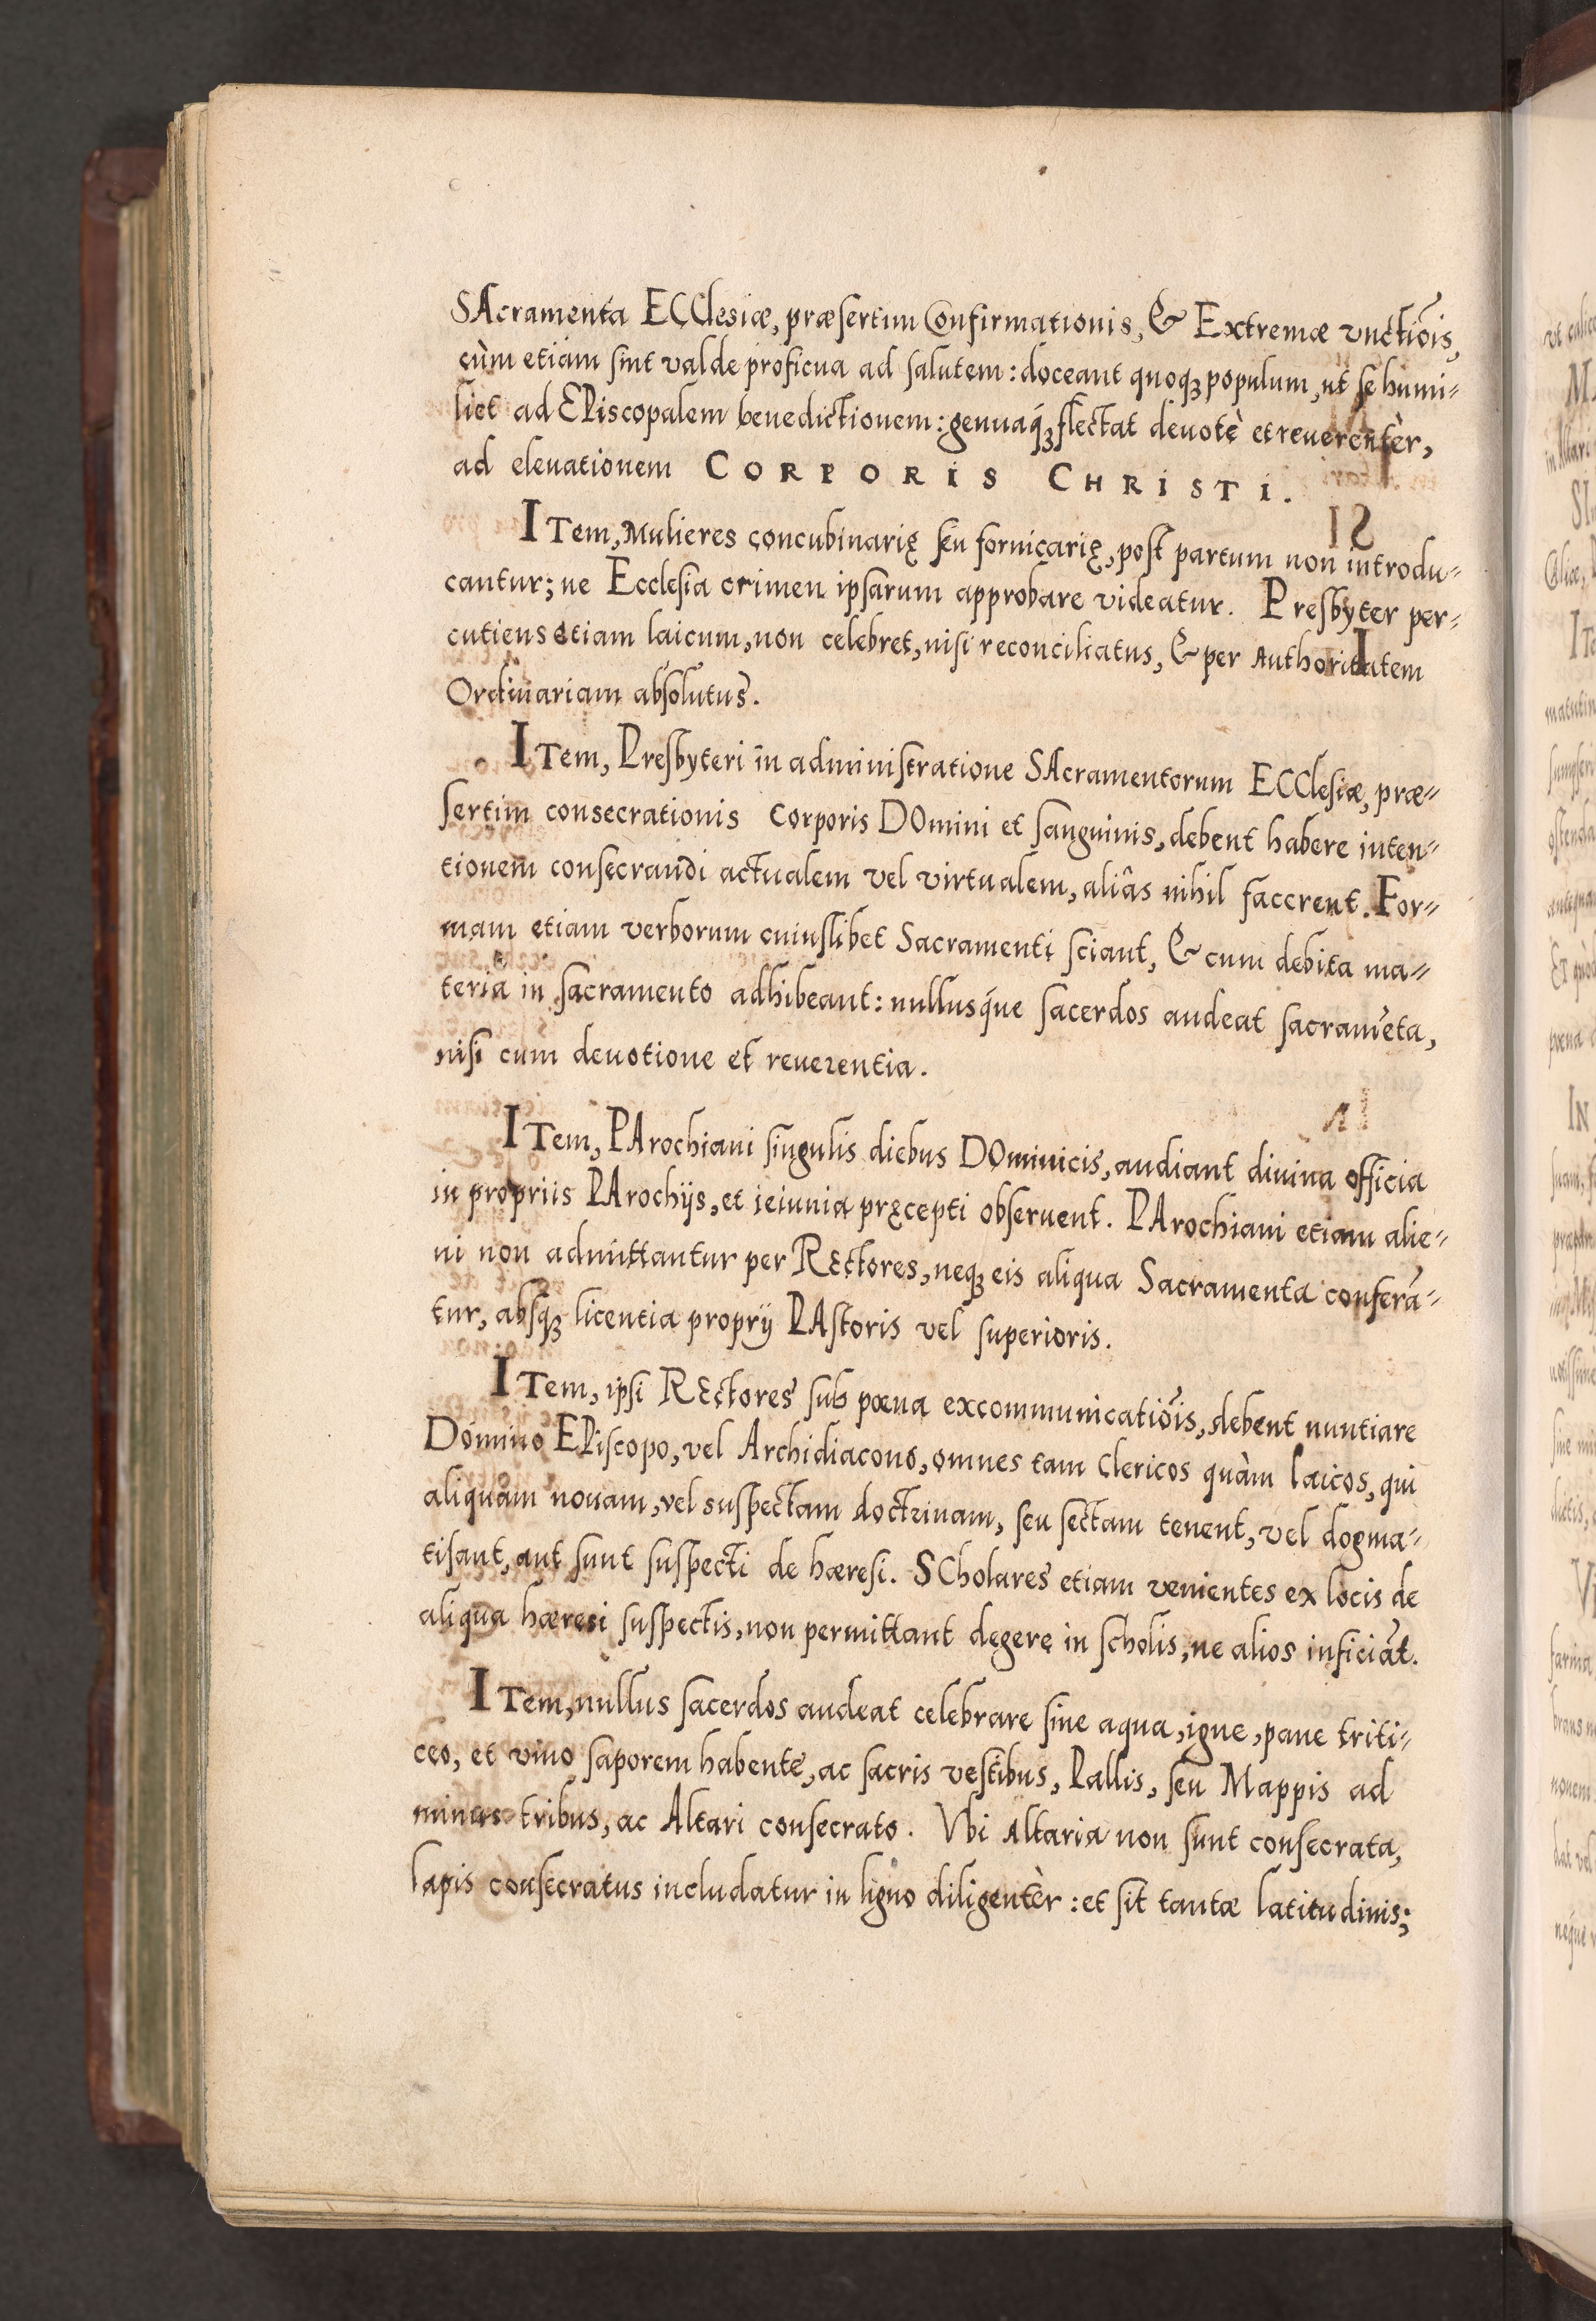 SAcramenta ECClesiæ, præsertim Confirmationis, & Extremæ vnctiōis,
cùm etiam sint valde proficua ad salutem: doceant quoqꝫ populum, ut se humi-
liet ad EPiscopalem benedictionem: genuaq́ꝫ flectat deuotè et reuerentèr,
ad eleuationem CORPORIS CHRISTI.
ITem, Mulieres concubinarię seu fornicarię, post partum non introdu-
cantur; ne Ecclesia crimen ipsarum approbare videatur. Presbyter per-
cutiens etiam laicum, non celebret, nisi reconciliatus, & per Authoritatem
Ordinariam absolutus.
ITem, Presbyteri in administratione SAcramentorum ECClesiæ, præ-
sertim consecrationis Corporis DOmini et sanguinis, debent habere inten-
tionem consecrandi actualem vel virtualem, aliâs nihil facerent. For-
mam etiam verborum cuiuslibet Sacramenti sciant, & cum debita ma-
teria in sacramento adhibeant: nullusq́ue sacerdos audeat sacramēta,
nisi cum deuotione et reuerentia.
ITem, PArochiani singulis diebus DOminicis, audiant diuina officia
in propriis PArochijs, et ieiunia pręcepti obseruent. PArochiani etiam alie-
ni non admittantur per REctores, neqꝫ eis aliqua Sacramenta conferā-
tur, absqꝫ licentia proprij PAstoris vel superioris.
ITem, ipsi REctores sub pœna excommunicatiōis, debent nuntiare
Domino EPiscopo, vel Archidiacono, omnes tam Clericos quàm laicos, qui
aliquam nouam, vel suspectam doctrinam, seu sectam tenent, vel dogma-
tisant, aut sunt suspecti de hæresi. SCholares etiam venientes ex locis de
aliqua hæresi suspectis, non permittant degere in scholis, ne alios inficiāt.
ITem, nullus sacerdos audeat celebrare sine aqua, igne, pane triti-
ceo, et vino saporem habente, ac sacris vestibus, Pallis, seu Mappis ad
minus tribus, ac Altari consecrato. Vbi Altaria non sunt consecrata,
lapis consecratus includatur in ligno diligentèr: et sit tantæ latitudinis;